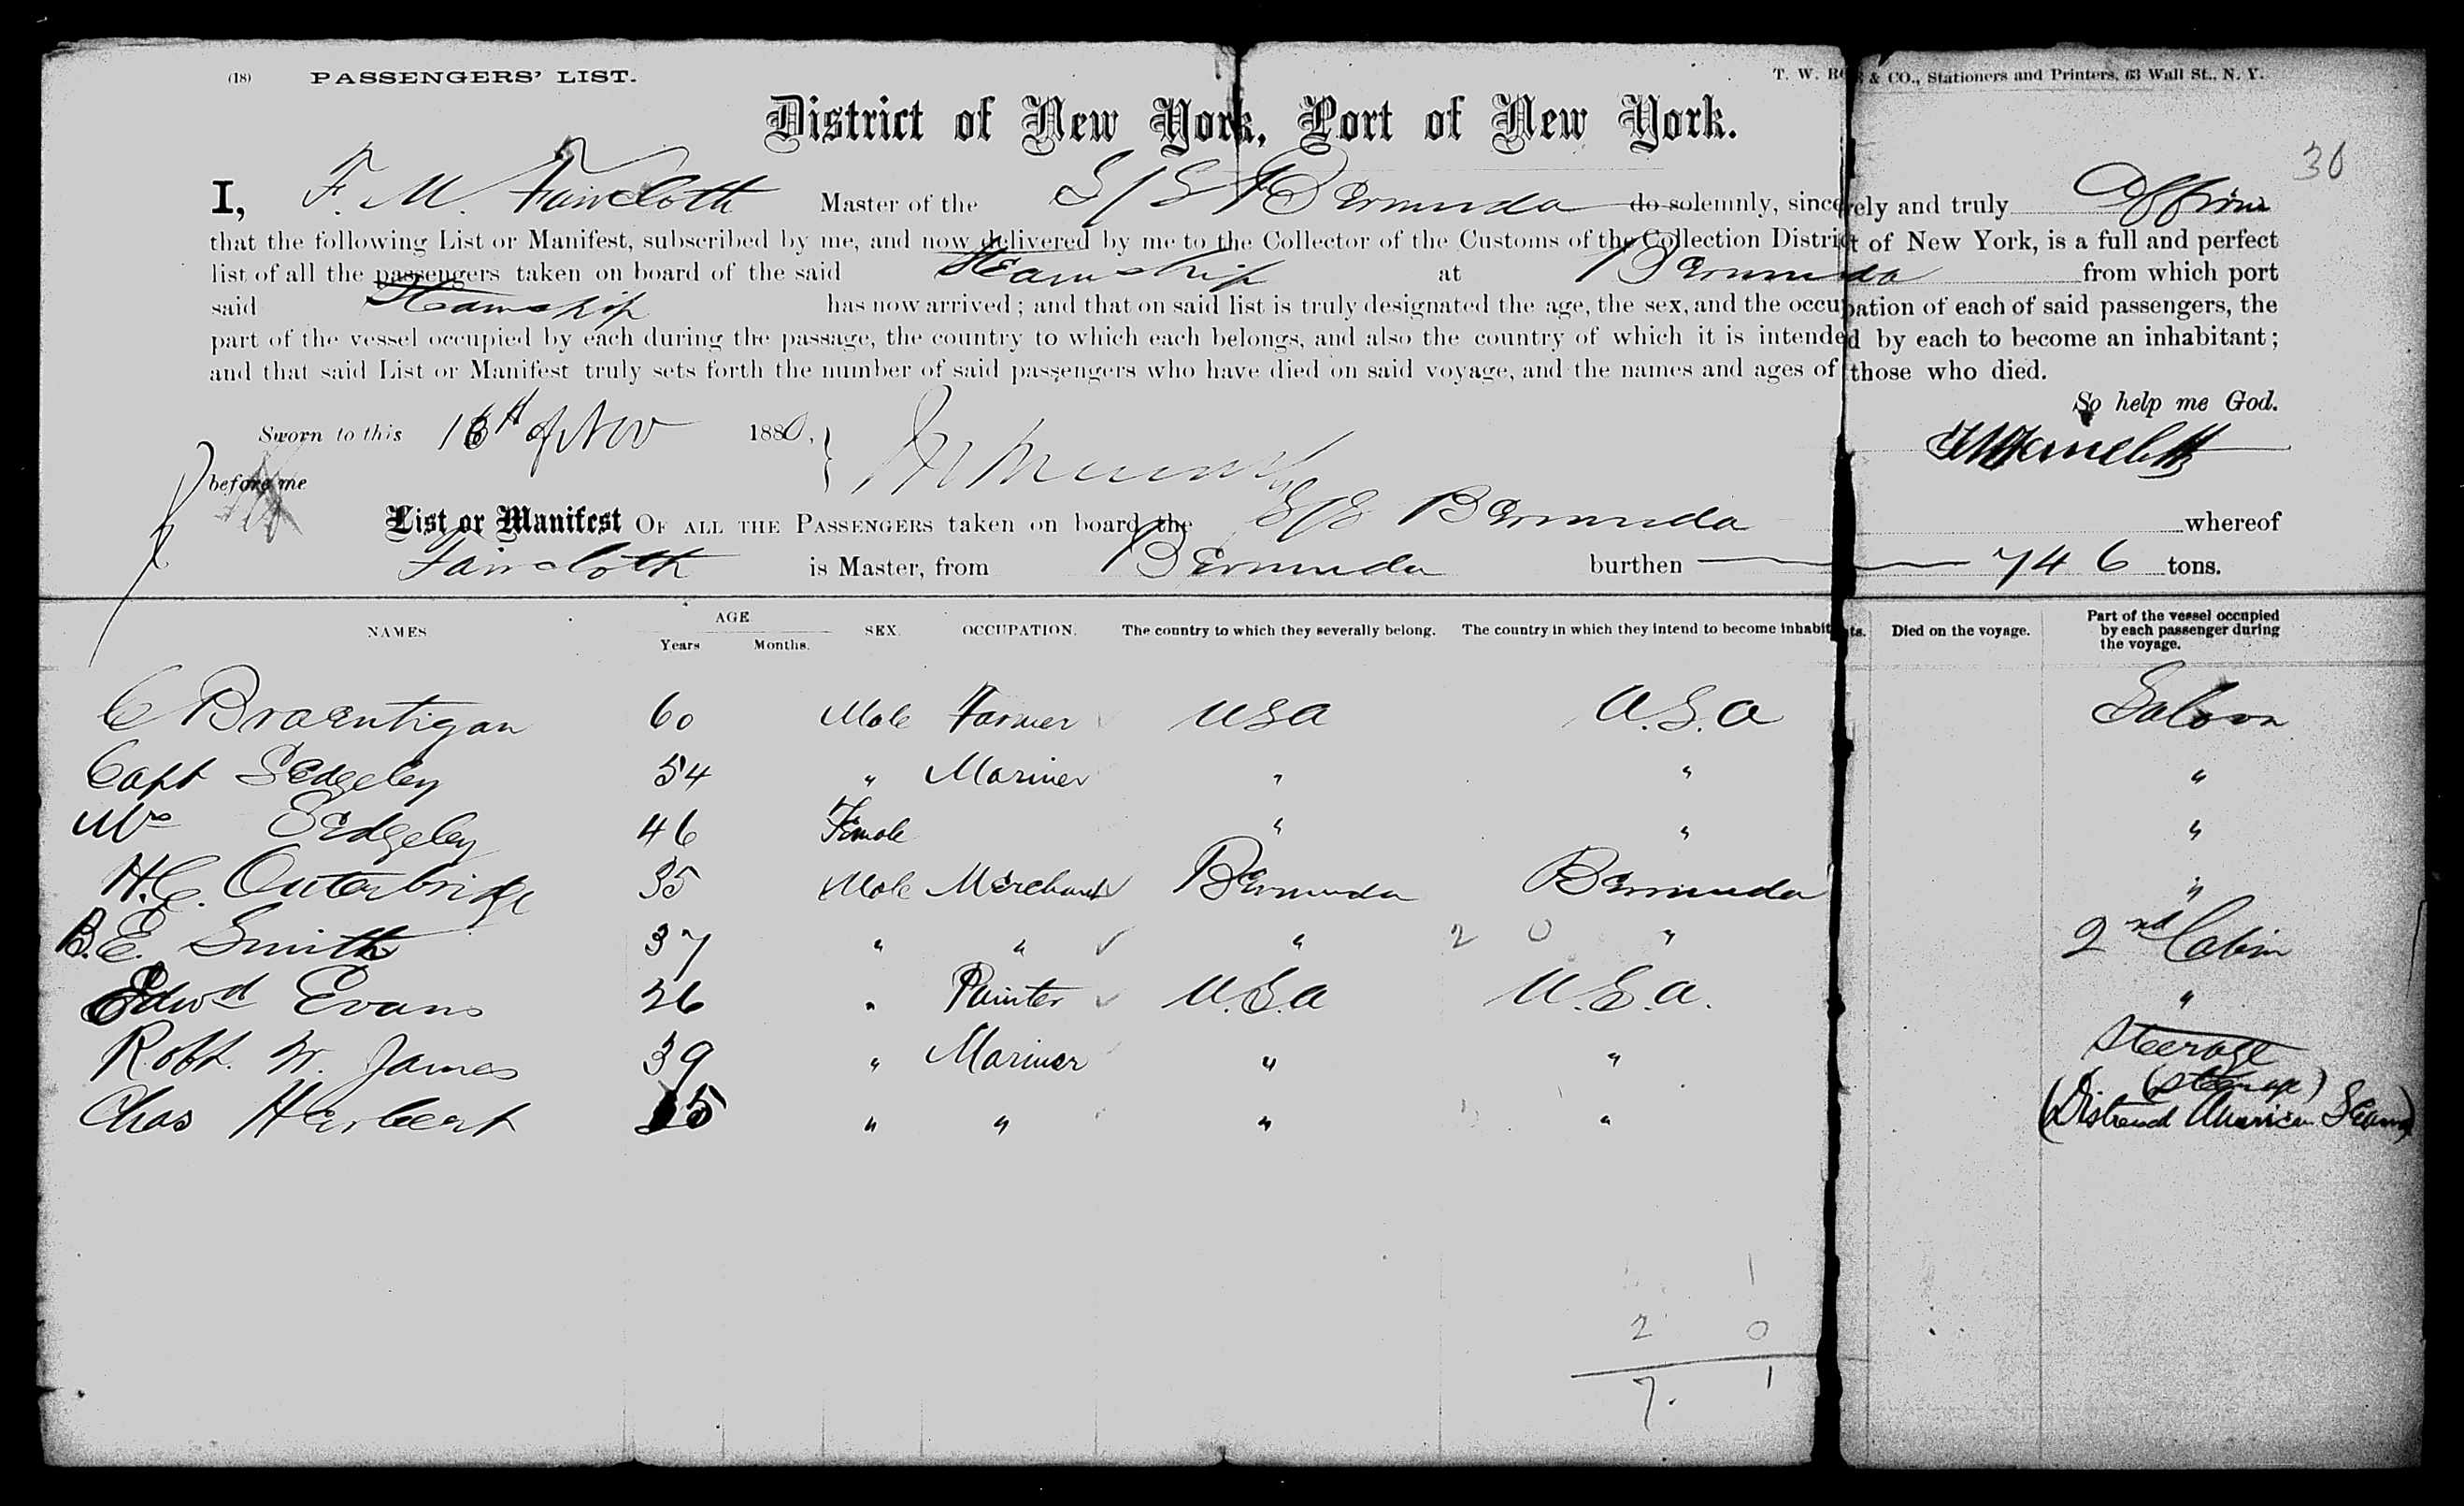 (18) PASSENGERS' LIST. T. W. & CO., Stationers and Printers, 63 Wall St., N. Y.
District of New York, Port of New York.
30
I, F. M. Faircloth Master of the S/S Bermuda do solemnly, sincerely and truly Affirm
that the following List or Manifest, subscribed by me, and now delivered by me to the Collector of the Customs of the Collection District of New York, is a full and perfect
list of all the passengers taken on board of the said Steamship at Bermuda from which port
said Steamship has now arrived; and that on said list is truly designated the age, the sex, and the occupation of each of said passengers, the
part of the vessel occupied by each during the passage, the country to which each belongs, and also the country of which it is intended by each to become an inhabitant;
and that said List or Manifest truly sets forth the number of said passengers who have died on said voyage, and the names and ages of those who died.
So help me God.
Sworn to this 16th of Nov 1880, FM Faircloth
before me
List or Manifest OF ALL THE PASSENGERS taken on board the S/S Bermuda whereof
Faircloth is Master, from Bermuda burthen 746 tons.
NAMES AGE Years Months. SEX. OCCUPATION. The country to which they severally belong. The country in which they intend to become inhabitants. Died on the voyage. Part of the vessel occupied by each passenger during the voyage.
C Braentigan 60 Male Farmer USA U.S.A Saloon
Capt Sedgeley 54 " Mariner " " "
Mrs Sedgeley 46 Female " " "
H.C. Outerbridge 35 Male Merchant Bermuda Bermuda "
B.E. Smith 37 " " " 2 0 " 2nd Cabin
Edwd Evans 26 " Painter U.S.A U.S.A. "
Robt. W. James 39 " Mariner " " Steerage
(Steerage)
Chas Herbert 25 " " " " (Distressed American Seamen)
1
2 0
7. 1